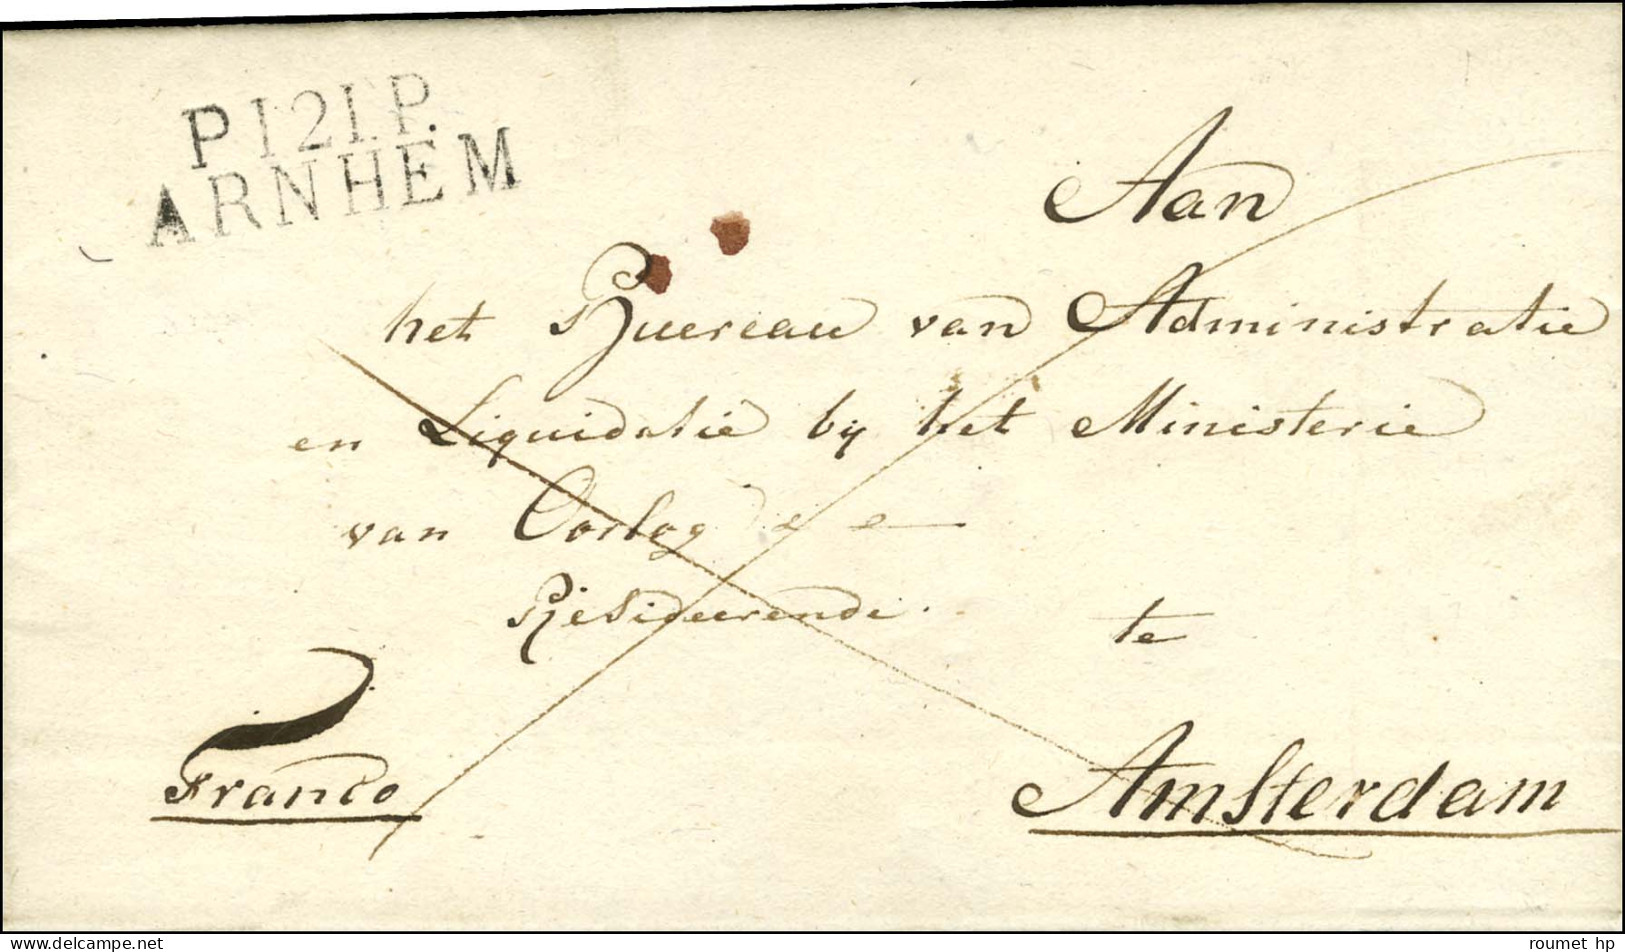 P121P.
ARNHEM
Aan
het Buereau van Administratie
en Liquidatie by het Ministerie
van Oorlog
Resideerende
te
Franco
Amsterdam
www.delcampe.net
roumet_hp